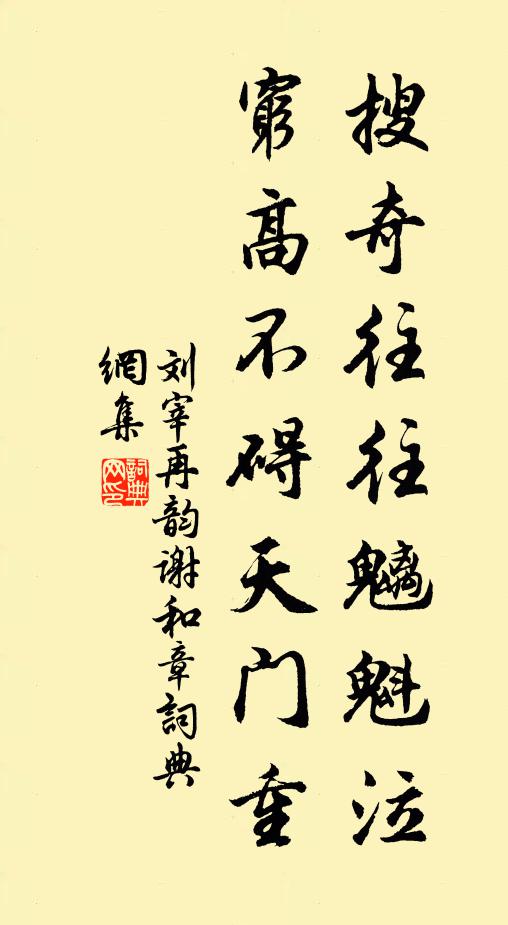 搜奇往往魑魁泣
窮高不碍天门重
刘宰再韵谢和章詞典
網集
詞典
网印